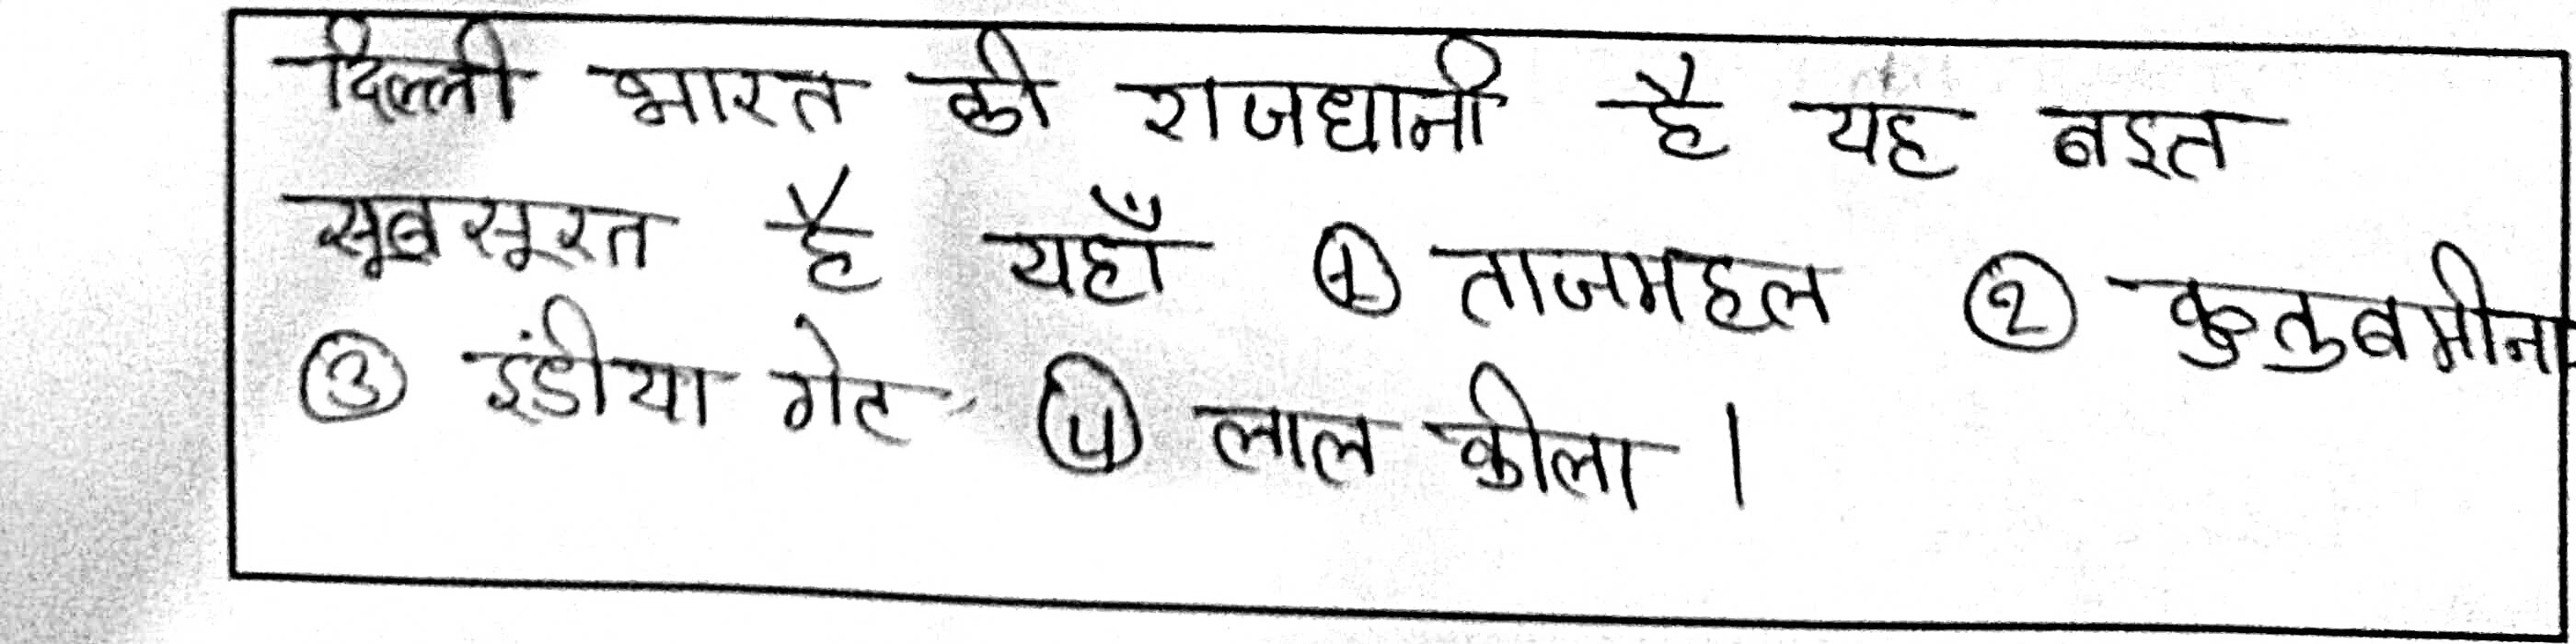 दिल्ली भारत की राजधानी है यह बहुत
सूबसूरत है यहाँ ① ताजमहल ② कुतुबमीना
③ इंडीया गेट ④ लाल कीला ।